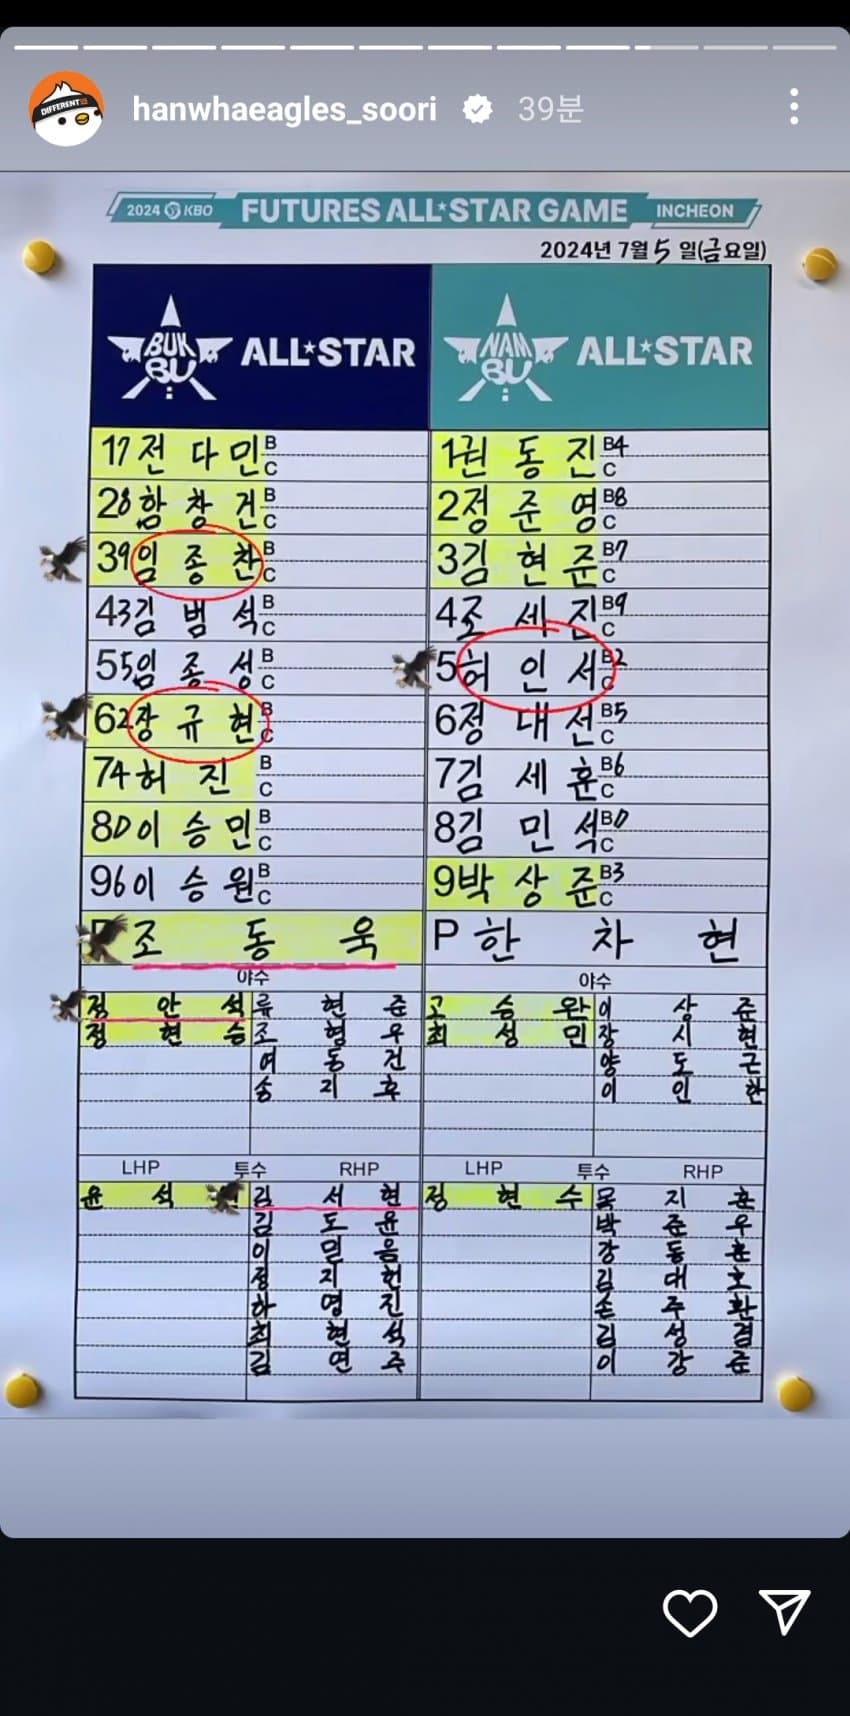 DIFFERENT
hanwhaeagles_soori 39분
2024 KBO FUTURES ALL★STAR GAME INCHEON
2024년 7월 5일(금요일)
BUK BU ALL★STAR
NAM BU ALL★STAR
17 전 다 민 B C
1 권 동 진 B4 C
28 함 창 건 B C
2 정 준 영 B8 C
39 임 종 찬 B C
3 김 현 준 B7 C
43 김 범 석 B C
4 조 세 진 B9 C
55 임 종 성 B C
5 허 인 서 B2 C
62 장 규 현 B C
6 정 대 선 B5 C
74 허 진 B C
7 김 세 훈 B6 C
8D 이 승 민 B C
8 김 민 석 BD C
96 이 승 원 B C
9 박 상 준 B3 C
조 동 욱
P 한 차 현
야수
야수
정 안 석 류 현 준
고 승 완 이 상 준
정 현 승 조 형 우
최 성 민 장 시 현
여 동 건
양 도 근
송 지 후
이 인 한
LHP 투수 RHP
LHP 투수 RHP
윤 석 김 서 현
정 현 수 목 지 훈
김 도 윤
박 준 우
이 믿 음
강 동 훈
정 지 헌
김 대 호
하 영 진
손 주 환
최 현 석
김 성 겸
김 연 주
이 강 준